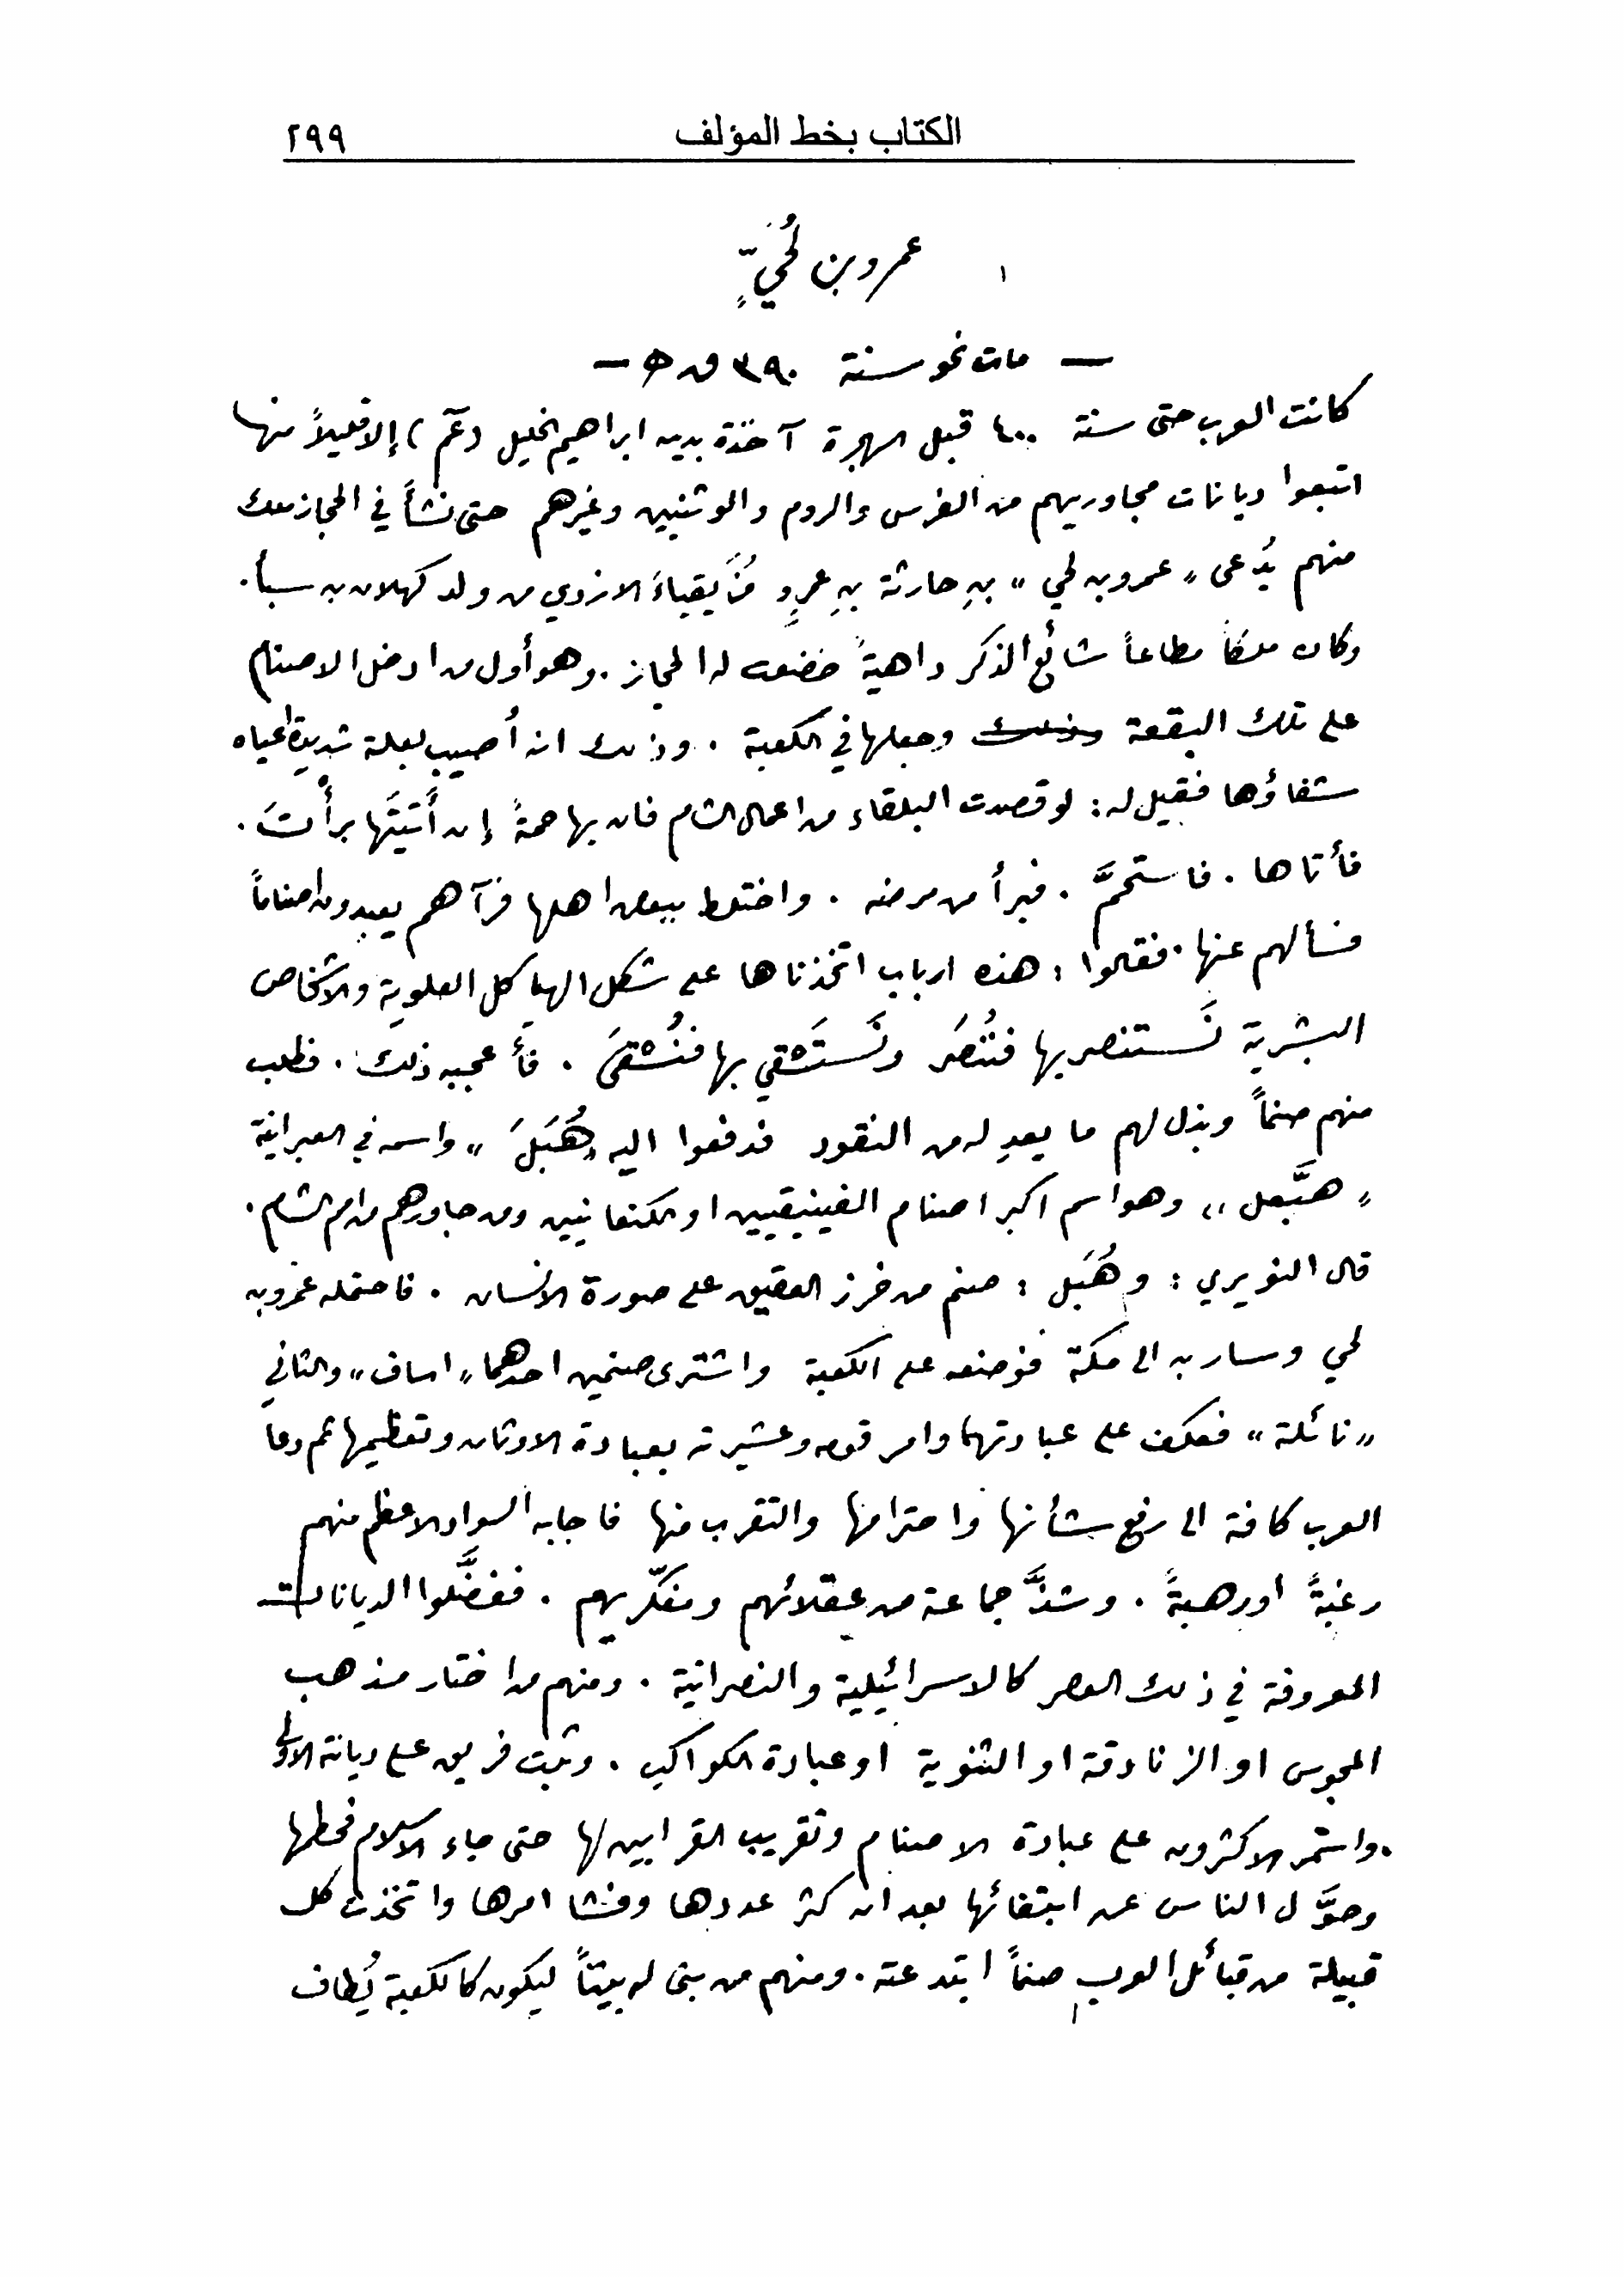 الكتاب بخط المؤلف ٢٩٩
١ عمرو بن لُحَيٍّ
— مات نحو سنة ٣٩٠ ق ھ —
كانت العرب حتى سنة ٤٠٠ قبل الهجرة آخذة بدين ابراهيم الخليل (عم) إلا قليلاً منها
اتبعوا ديانات مجاوريهم من الفرس والروم والوثنيين وغيرهم حتى نشأ في الحجاز ملك
منهم يُدعى « عمرو بن لحي » بنِ حارثة بنِ عمرٍو مُزَيقياءَ الازدي من ولد كهلان بن سبأ .
وكان ملكاً مطاعاً شائع الذكر داهيةً خضعت له الحجاز . وهو أول من ادخل الاصنام
على تلك البقعة وجعلها في الكعبة . وذلك انه أُصيب بعلة شديدة اعياه
شفاؤها فقيل له : لو قصدت البلقاء من اعمال الشام فان بها حمةً إن أَتَيتَها برأْتَ .
فأتاها . فاستحمَّ . فبرأ من مرضه . واختلط ببعض اهلها فرآهم يعبدون اصناماً
فسألهم عنها . فقالوا : هذه ارباب اتخذناها على شكل الهياكل العلوية والاشخاص
البشرية نَستنصر بها فنُنصَر ونَستَشفي بها فنُشفَى . فأعجبه ذلك . فطلب
منهم صنماً وبذل لهم ما يعدله من النقود فدفعوا اليه « هُبَلَ » واسمه في العبرانية
« هبَّعل » وهو اسم اكبر اصنام الفينيقيين او الكنعانيين ومن جاورهم من امم الشام .
قال النويري : وهُبَل : صنم من خرز العقيق على صورة الانسان . فاحتمله عمرو بن
لحي وسار به الى مكة فوضعه على الكعبة واشترى صنمين احدهما « اساف » والثاني
« نائلة » فعكف على عبادتهما وامر قومه وعشيرته بعبادة الاوثان وتعظيمها ثم دعا
العرب كافة الى رفع شأنها واحترامها والتقرب منها فاجابه السواد الاعظم منهم
رغبةً أو رهبةً . وشذَّ جماعة من عقلائهم ومفكّريهم . ففضَّلوا الديانات
المعروفة في ذلك العصر كالاسرائيلية والنصرانية . ومنهم من اختار مذهب
المجوس او الزنادقة او الثنوية او عبادة الكواكب . وثبت فريق على ديانته الاولى
. واستمر الاكثرون على عبادة الاصنام وتقريب القرابين لها حتى جاء الاسلام فحطمها
وحوَّل الناس عن ابتغائها بعد ان كثر عددها وفشا امرها واتخذت كل
قبيلة من قبائل العرب صنماً ابتدعته . ومنهم من بنى له بيتاً ليكون كالكعبة يُطاف